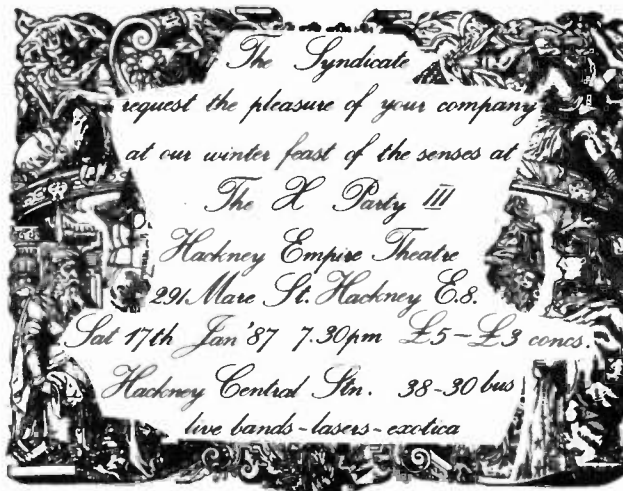 The Syndicate
request the pleasure of your company
at our winter feast of the senses at
The X Party III
Hackney Empire Theatre
291 Mare St. Hackney E.8.
Sat 17th Jan '87 7.30pm £5-£3 concs.
Hackney Central Stn. 38-30 bus
live bands-lasers-exotica